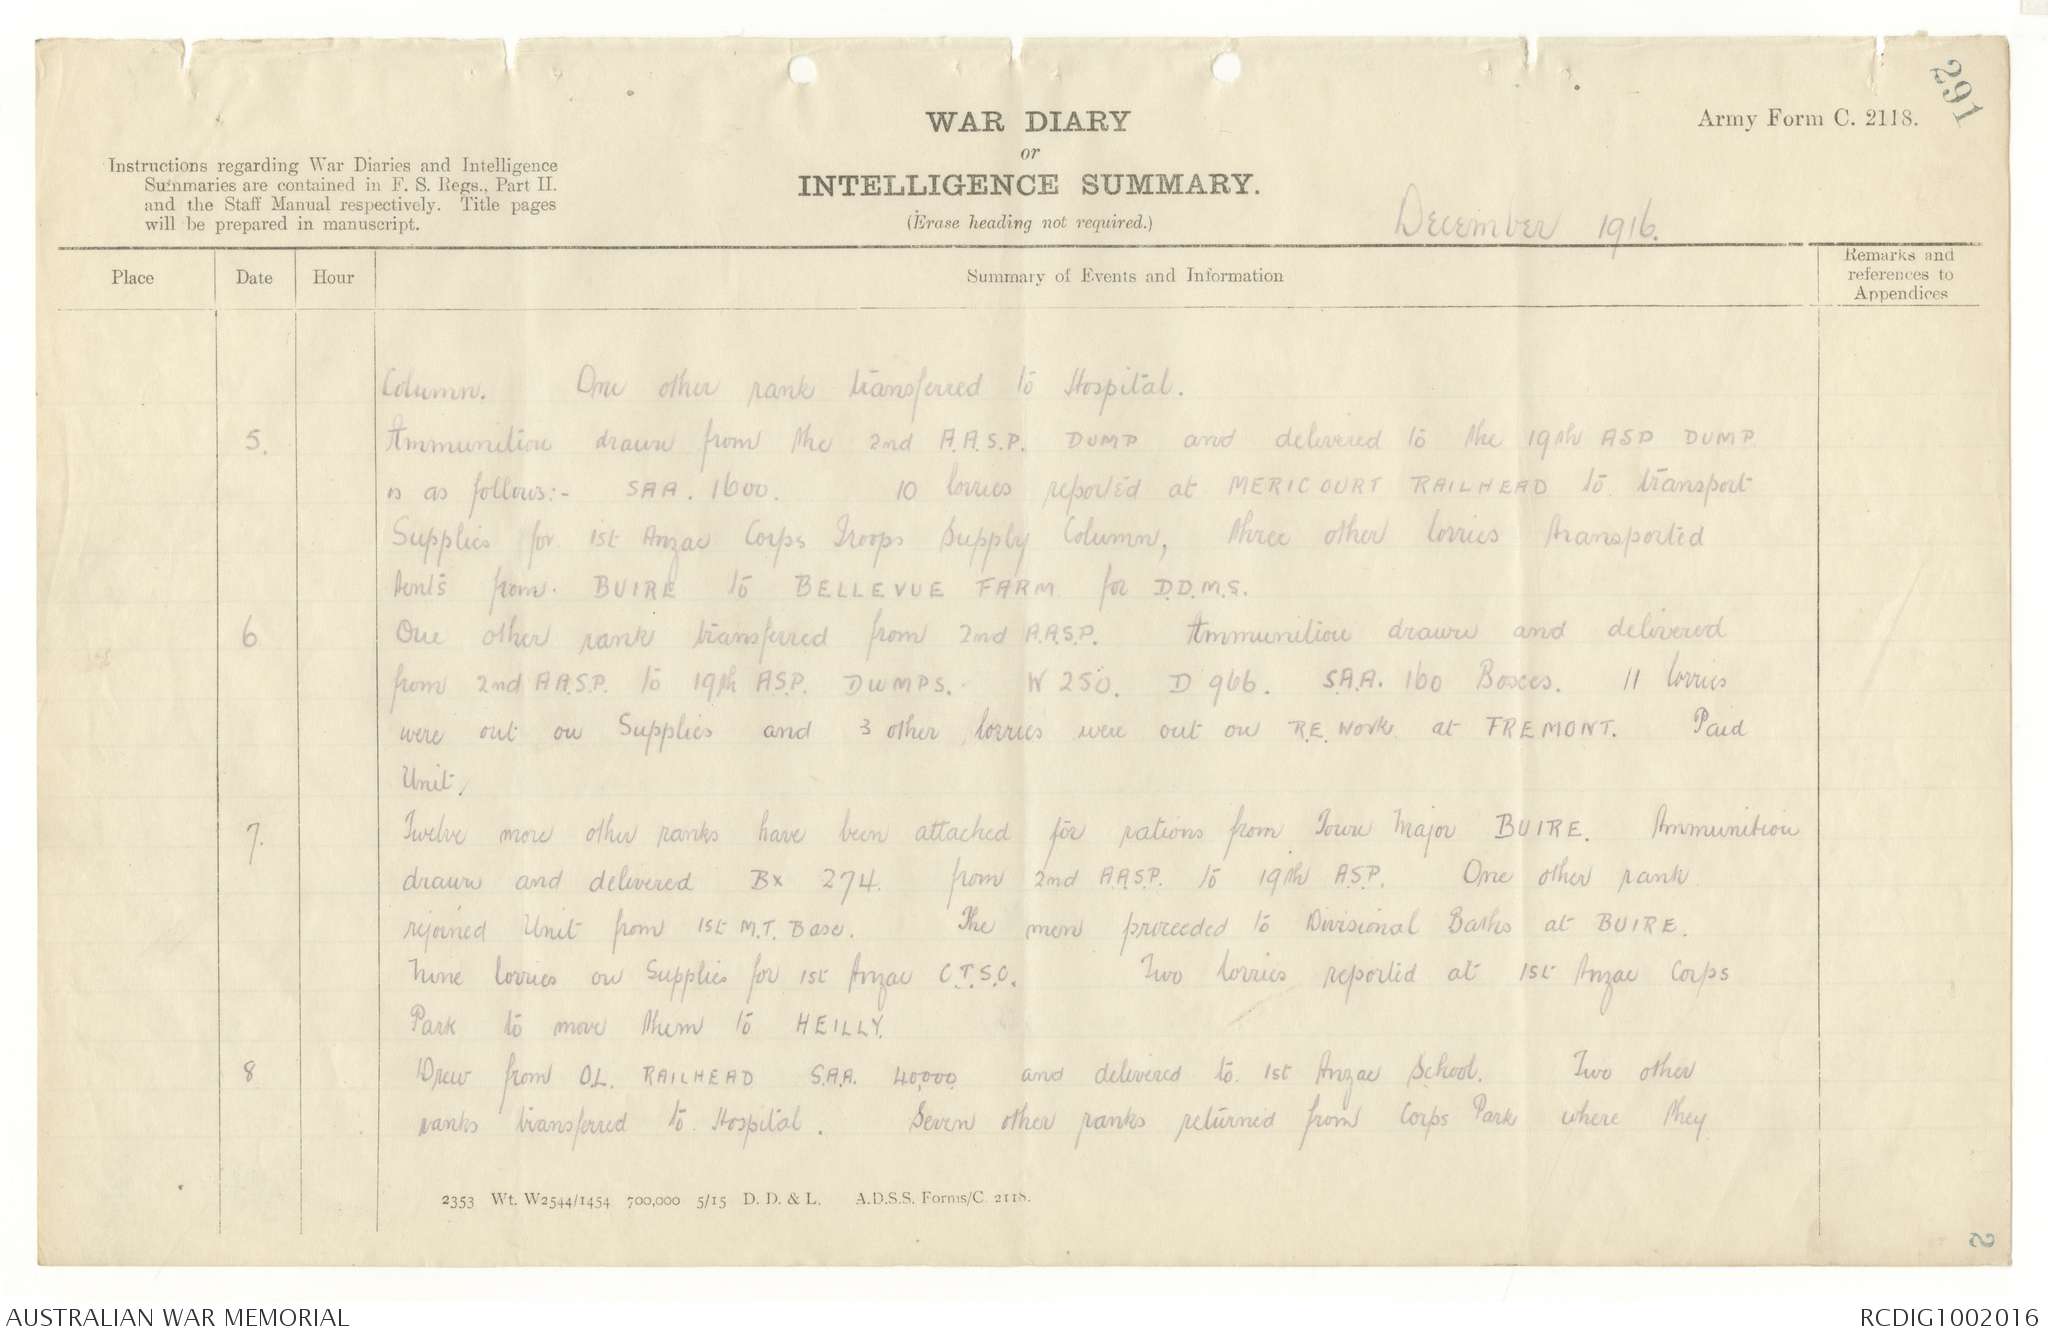 291
WAR DIARY
or
INTELLIGENCE SUMMARY.
(Erase heading not required.)
Army Form C. 2118.
Instructions regarding War Diaries and Intelligence
Summaries are contained in F. S. Regs., Part II.
and the Staff Manual respectively. Title pages
will be prepared in manuscript.
December 1916.
Place Date Hour Summary of Events and Information Remarks and
references to
Appendices
Column. One other rank transferred to Hospital.
5. Ammunition drawn from the 2nd A.A.S.P. DUMP and delivered to the 19th ASP DUMP
is as follows:- SAA. 1600. 10 lorries reported at MERICOURT RAILHEAD to transport
Supplies for 1st Anzac Corps Troops Supply Column, three other lorries transported
tents from BUIRE to BELLEVUE FARM for D.D.M.S.
6 One other rank transferred from 2nd A.A.S.P. Ammunition drawn and delivered
from 2nd A.A.S.P. to 19th A.S.P. DUMPS. W 250. D 966. S.A.A. 160 Boxes. 11 lorries
were out on Supplies and 3 other lorries were out on R.E. Work at FREMONT. Paid
Unit.
7. Twelve more other ranks have been attached for rations from Town Major BUIRE. Ammunition
drawn and delivered BX 274. from 2nd A.A.S.P. to 19th A.S.P. One other rank
rejoined Unit from 1st M.T. Base. The men proceeded to Divisional Baths at BUIRE.
Nine lorries on Supplies for 1st Anzac C.T.S.C. Two lorries reported at 1st Anzac Corps
Park to move them to HEILLY.
8 Drew from O.L. RAILHEAD S.A.A. 40,000 and delivered to 1st Anzac School. Two other
ranks transferred to Hospital. Seven other ranks returned from Corps Park where they
2353 Wt. W2544/1454 700,000 5/15 D. D. & L. A.D.S.S. Forms/C. 2118.
2
AUSTRALIAN WAR MEMORIAL
RCDIG1002016